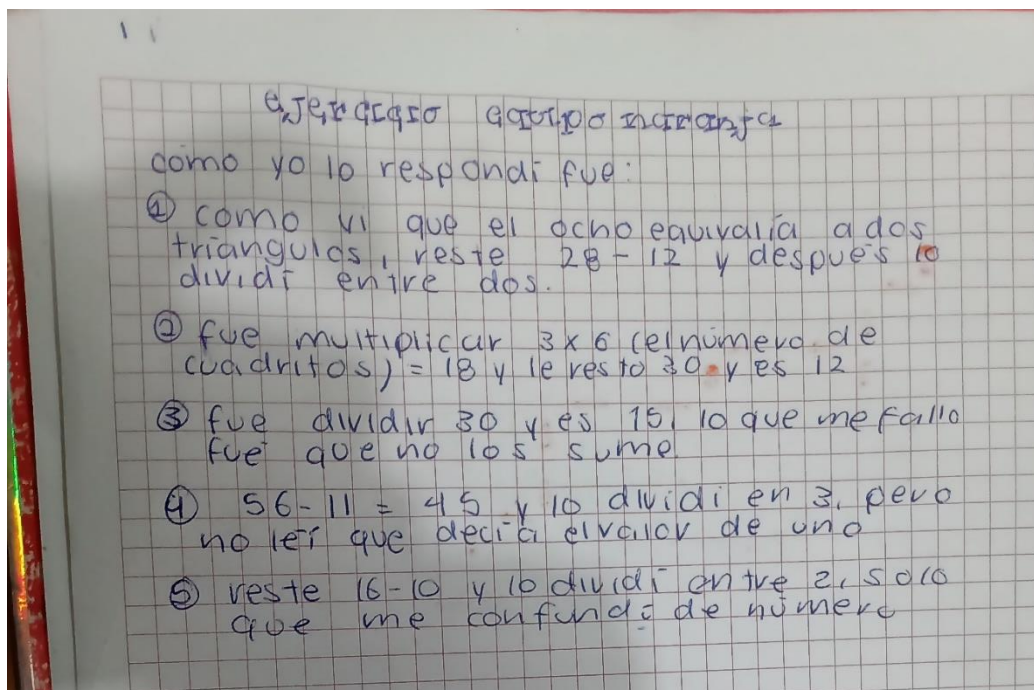 ejercicio equipo naranja
como yo lo respondi fue:
① como vi que el ocho equivalía a dos
triangulos, reste 28-12 y después lo
dividí entre dos.
② fue multiplicar 3x6 (el número de
cuadritos) = 18 y le resto 30 y es 12
③ fue dividir 30 y es 15, lo que me fallo
fue que no los sume
④ 56-11 = 45 y lo dividi en 3, pero
no leí que decía el valor de uno
⑤ reste 16-10 y lo dividí entre 2, solo
que me confundí de número